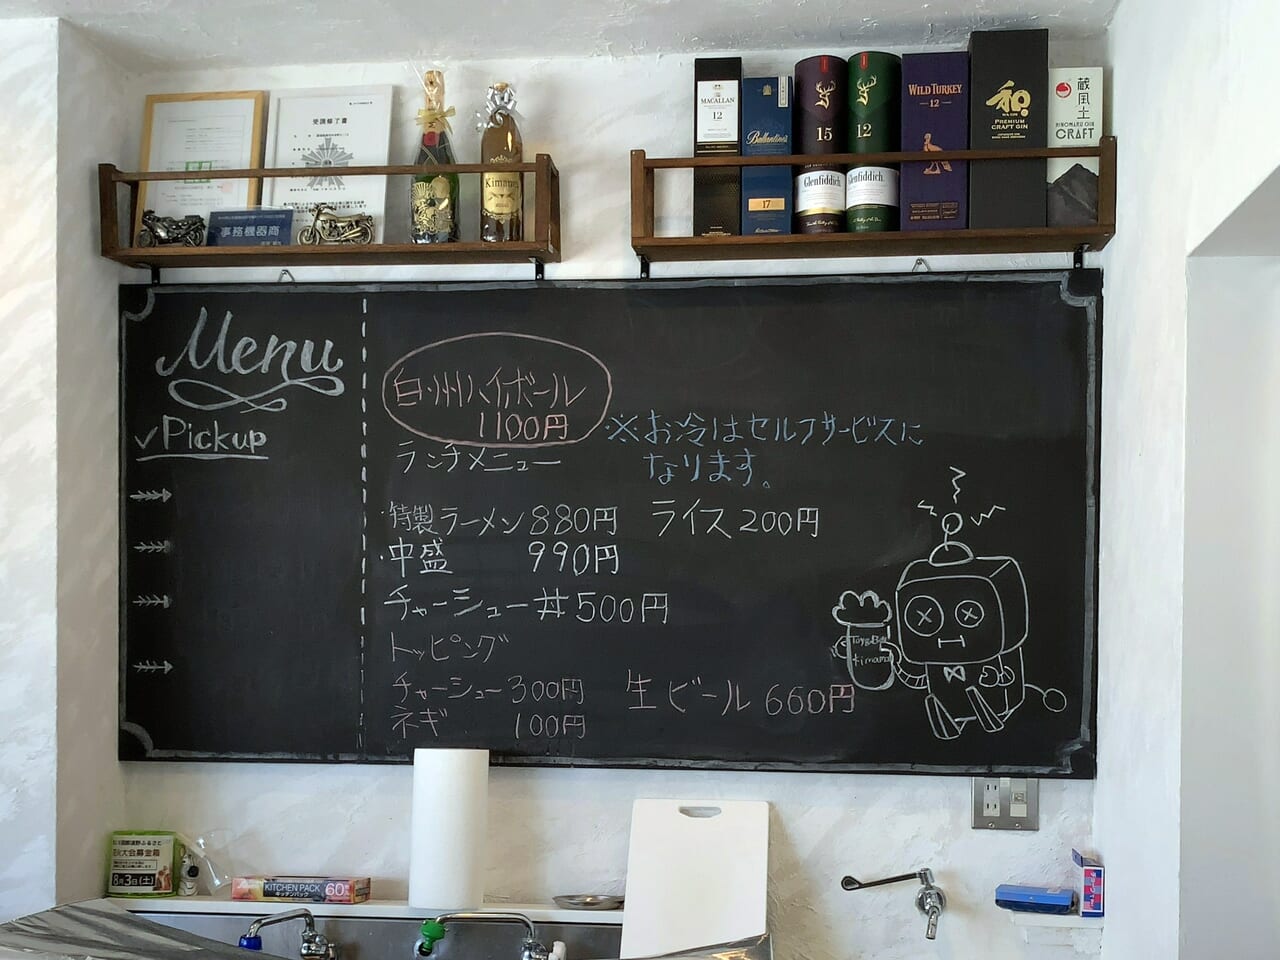 受講修了書
事務機器商
Kimama
MACALLAN
12
Ballantine's
17
15
Glenfiddich
12
Glenfiddich
WILD TURKEY
12
和
PREMIUM
CRAFT GIN
蔵風土
HINOMARU GIN
CRAFT
Menu
Pickup
白州ハイボール
1100円
※お冷はセルフサービスに
なります。
ランチメニュー
・特製ラーメン 880円 ライス 200円
・中盛 990円
チャーシュー丼 500円
トッピング
チャーシュー 300円
ネギ 100円
生ビール 660円
Kimama
火大会募金箱
8月3日(土)
KITCHEN PACK
キッチンパック
60